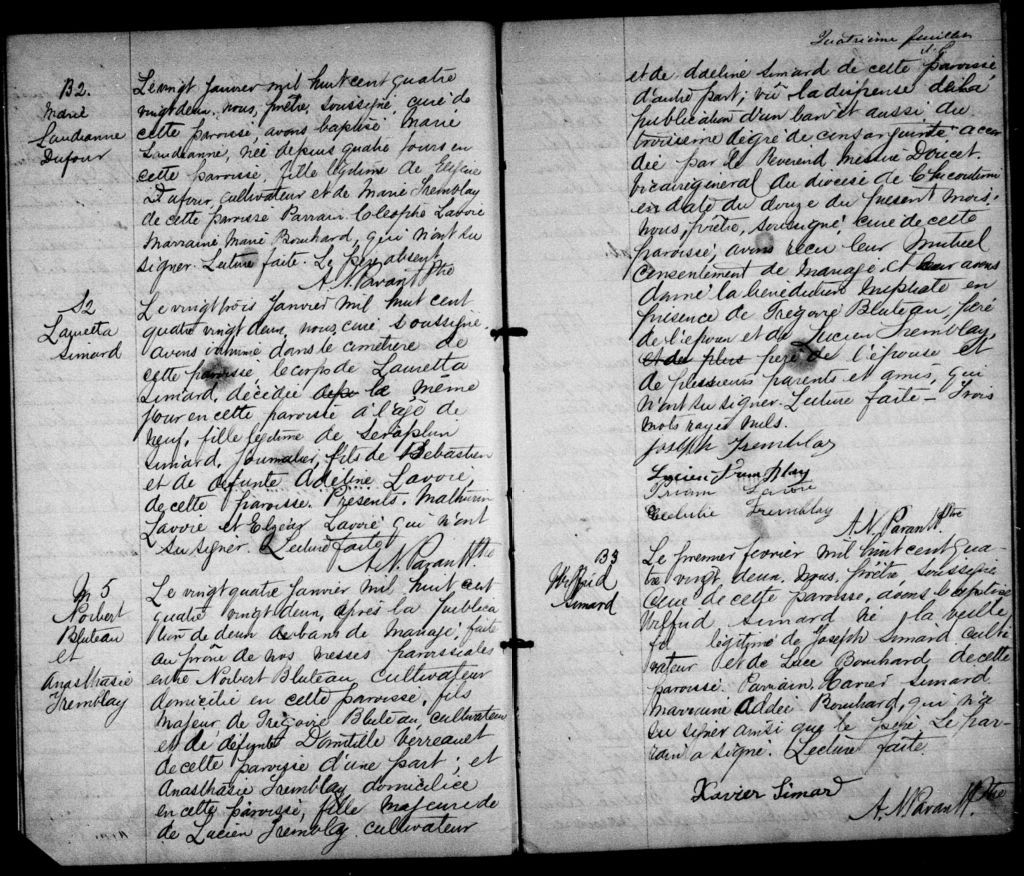 B2.
Marie
Laudeanne
Dufour
Le vingt Janvier mil huit cent quatre
vingt deux, nous, prêtre, soussigné, curé de
cette paroisse, avons baptisé Marie
Laudeanne, née depuis quatre jours en
cette paroisse, fille légitime de Elzear
Dufour, cultivateur et de Marie Tremblay
de cette paroisse Parrain Cleophe Lavoie
Marraine Marie Bouchard, qui n'ont su
signer. Lecture faite. Le père absent
A. N. Parant Ptre
S2
Lauretta
Simard
Le vingt trois Janvier mil huit cent
quatre vingt deux, nous, curé soussigné,
avons inhumé dans le cimetière de
cette paroisse le corps de Lauretta
Simard, décidée la même
jour en cette paroisse à l'âge de
neuf, fille légitime de Seraphin
Simard, Journalier, fils de Sebastien
et de defunte Adéline Lavoie,
de cette paroisse. Présents. Mathurin
Lavoie et Elzéar Lavoie qui n'ont
su signer. Lecture faite
A. N. Parant Ptr.
M 5
Norbert
Bluteau
et
Anasthasie
Tremblay
Le vingt quatre Janvier mil huit cent
quatre vingt deux, après la publica
tion de deux bans de mariage, faite
au prône de nos messes paroissiales
entre Norbert Bluteau, cultivateur
domicilié en cette paroisse, fils
majeur de Grégoire Bluteau, cultivateur
et de défunte Domitille Verreault
de cette paroisse d'une part; et
Anasthasie Tremblay domicilice
en cette paroisse, fille majeure de
de Lucien Tremblay cultivateur
Quatrième feuillet
et de Adeline Simard de cette paroisse
d'autre part; vû la dispense de la
publication d'un ban et aussi du
troisieme dégré de consanguinité accor
dée par le Reverend Messire Doucet.
vicaire général du diocèse de Chicoutimi
en date du douze du present mois;
nous, prêtre, soussigné, curé de cette
paroisse, avons recu leur mutuel
consentement de mariage, et leur avons
donné la bénédiction nuptiale en
présence de Grégoire Bluteau, père
de l'époux et de Lucien Tremblay,
et de plus père de l'épouse et
de plusieurs parents et amis, qui
n'ont su signer. Lecture faite — Trois
mots rayés nuls.
Joseph Tremblay
Lucien Tremblay
Lavoie
Tremblay
A. N. Parant Ptre
B3
Wilfrid
Simard
Le premier fevrier mil huit cent qua-
tre vingt, deux, nous, prêtre, soussigné
curé de cette paroisse, avons baptisé
Wilfrid Simard né la veille
fils légitime de Joseph Simard culti
vateur et de Luce Bouchard de cette
paroisse. Parrain, Xavier Simard
Marraine Addée Bouchard, qui n'a
su signer ainsi que le père Le par-
rain a signé. Lecture faite
Xavier Simard
A. N. Parant Ptre.